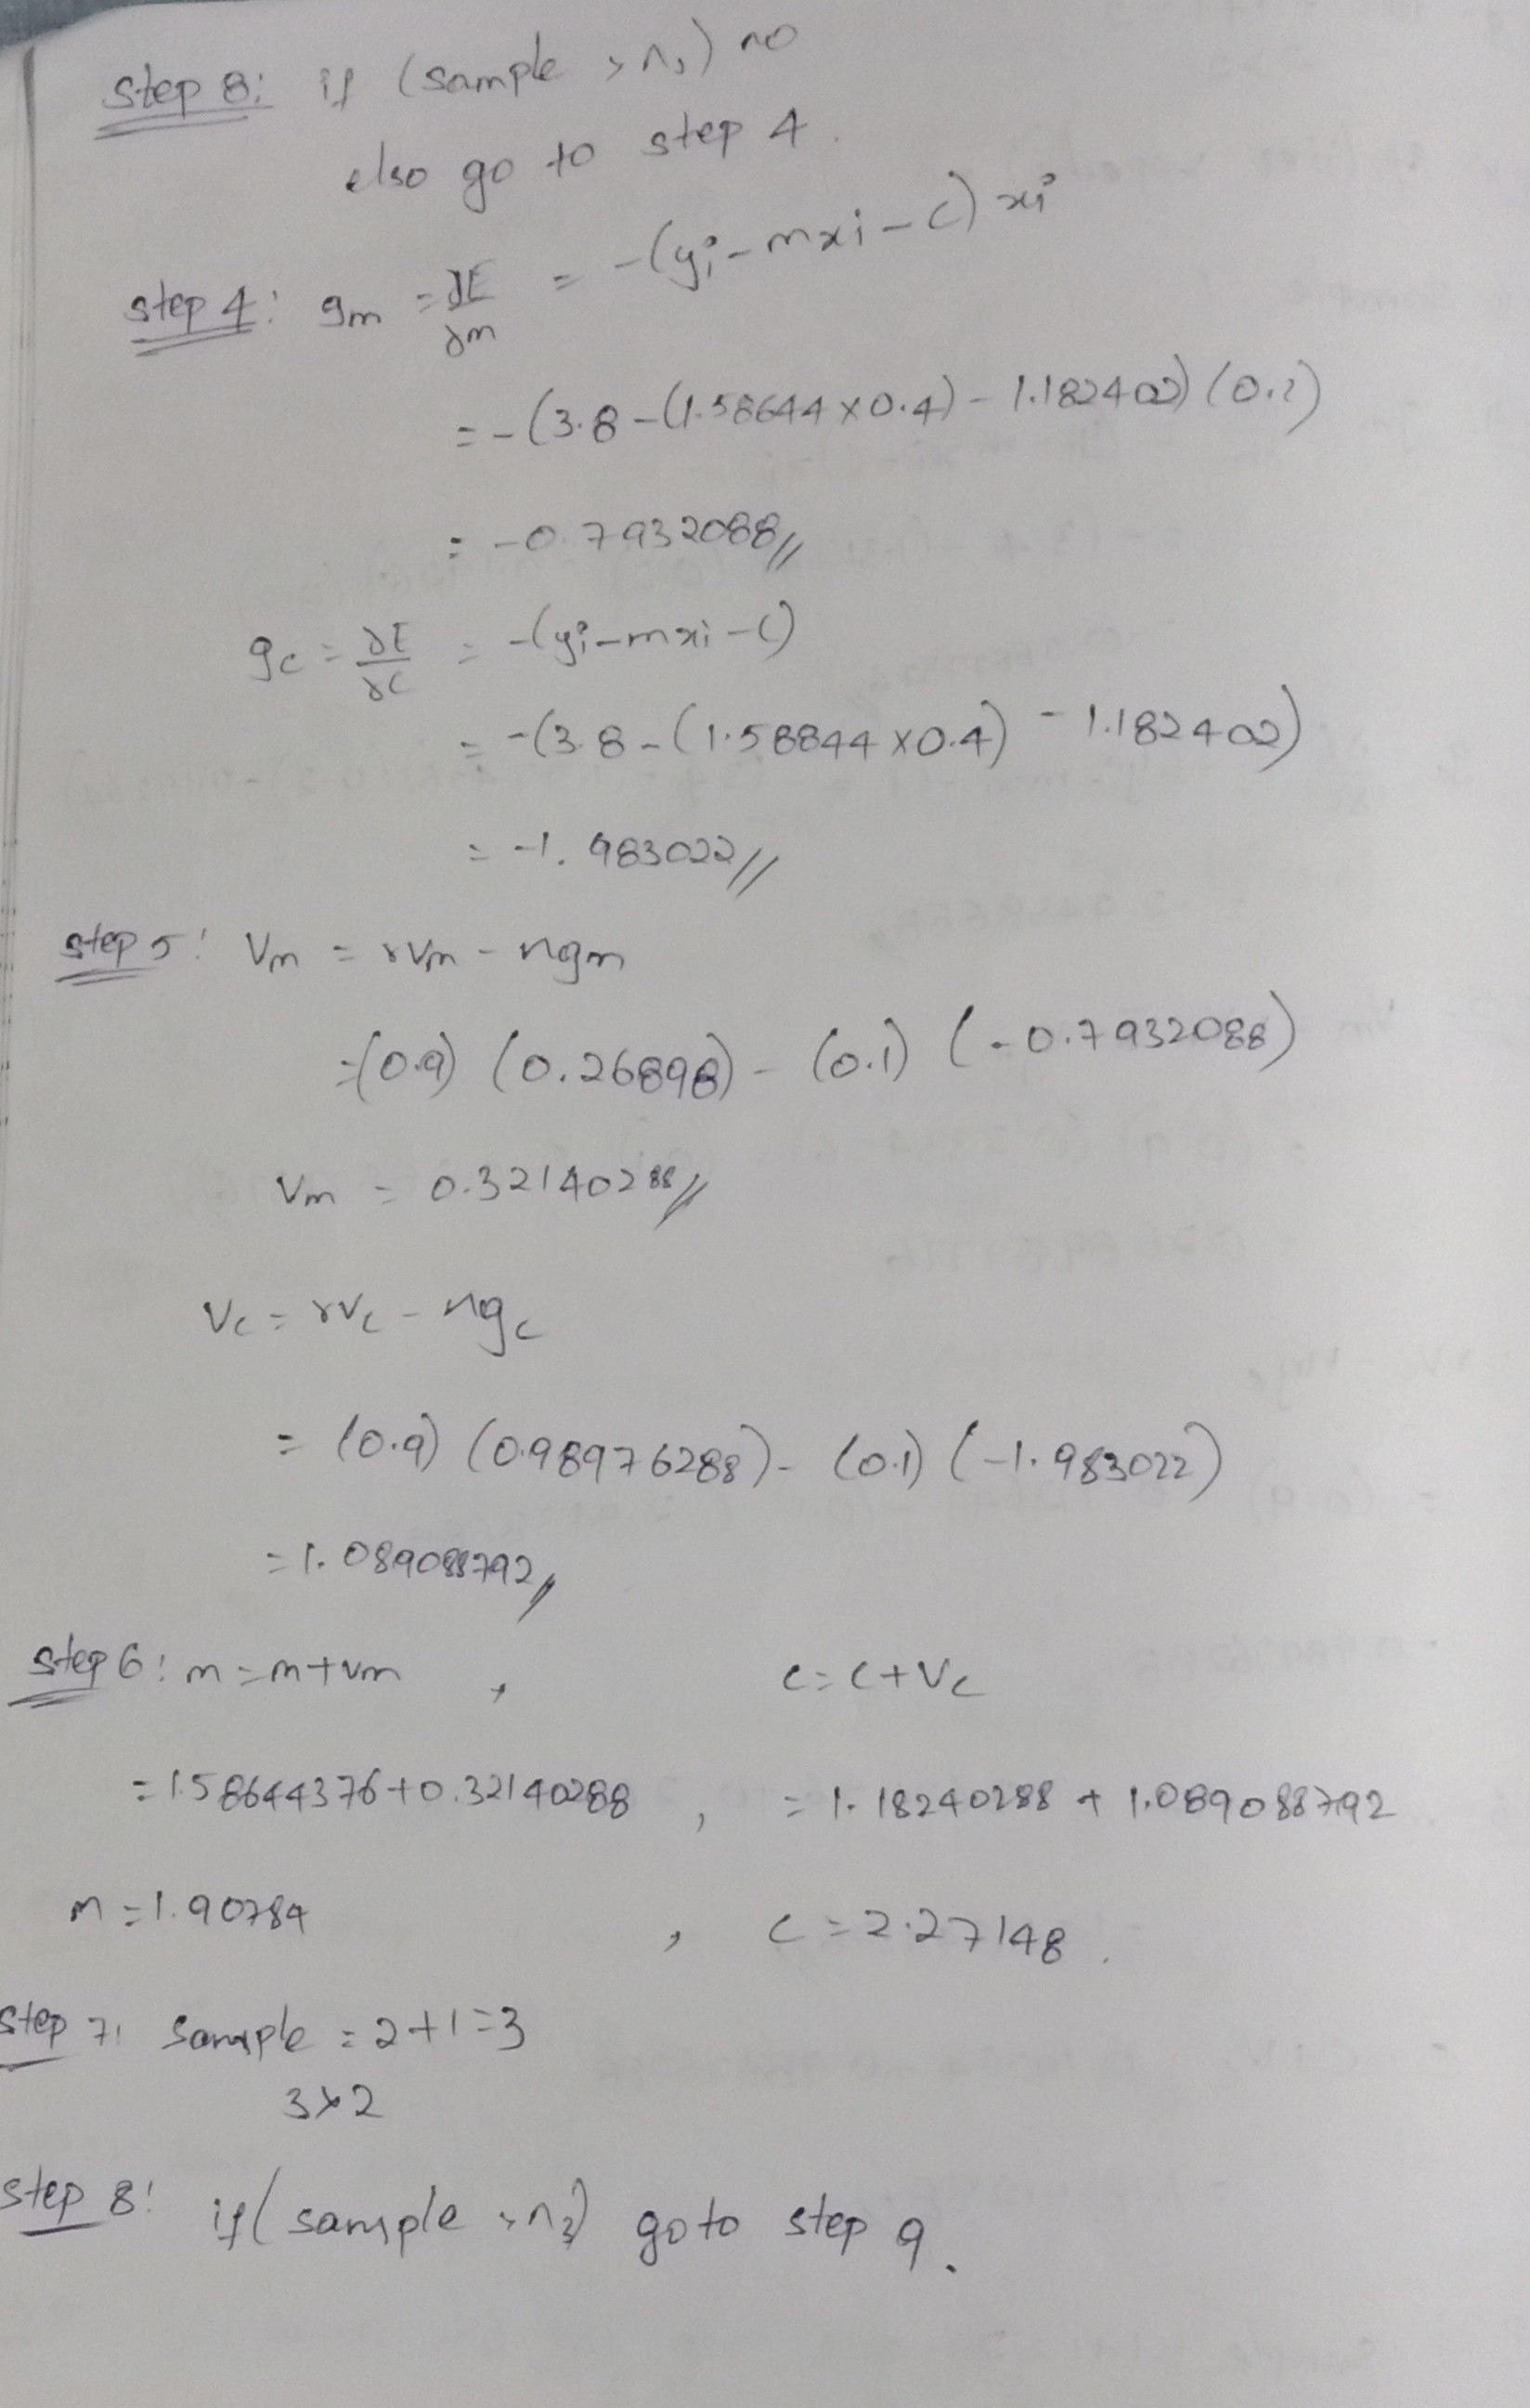 step 8: if (sample > ns) no
else go to step 4.
step 4: gm = ∂E/∂m = -(yi - mxi - c) xi
= -(3.8 - (1.58644 x 0.4) - 1.182402) (0.2)
= -0.7932088//
gc = ∂E/∂c = -(yi - mxi - c)
= -(3.8 - (1.58844 x 0.4) - 1.182402)
= -1.983022//
step 5: Vm = rVm - ηgm
= (0.9) (0.26898) - (0.1) (-0.7932088)
Vm = 0.32140288//
Vc = rVc - ηgc
= (0.9) (0.98976288) - (0.1) (-1.983022)
= 1.089088792//
step 6: m = m + vm , c = c + Vc
= 1.58644376 + 0.32140288 , = 1.18240288 + 1.089088792
m = 1.90784 , c = 2.27148.
step 7: Sample = 2+1=3
3>2
step 8: if (sample > ns) goto step 9.